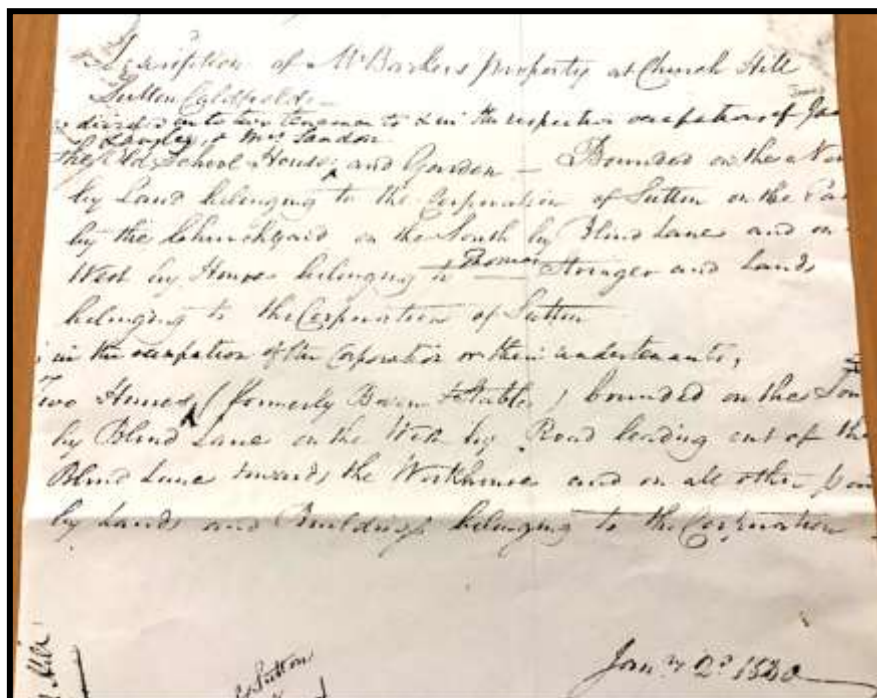 Description of Mr Barkers property at Church Hill
Sutton Coldfield
divided into two tenements & in the respective occupation of
Langley & Mrs Sandon
The Old School House, and Garden — Bounded on the
by Land belonging to the Corporation of Sutton on the
by the Churchyard on the South by Blind Lane and on
West by Houses belonging to Thomas Stringer and Lands
belonging to the Corporation of Sutton
in the occupation of the Corporation or their undertenants,
Two Houses (formerly Barn & Stables) bounded on the Sou
by Blind Lane on the West by Road leading out of the
Blind Lane towards the Workhouse and on all other
by Lands and Buildings belonging to the Corporation
Jany 2d
Sutton